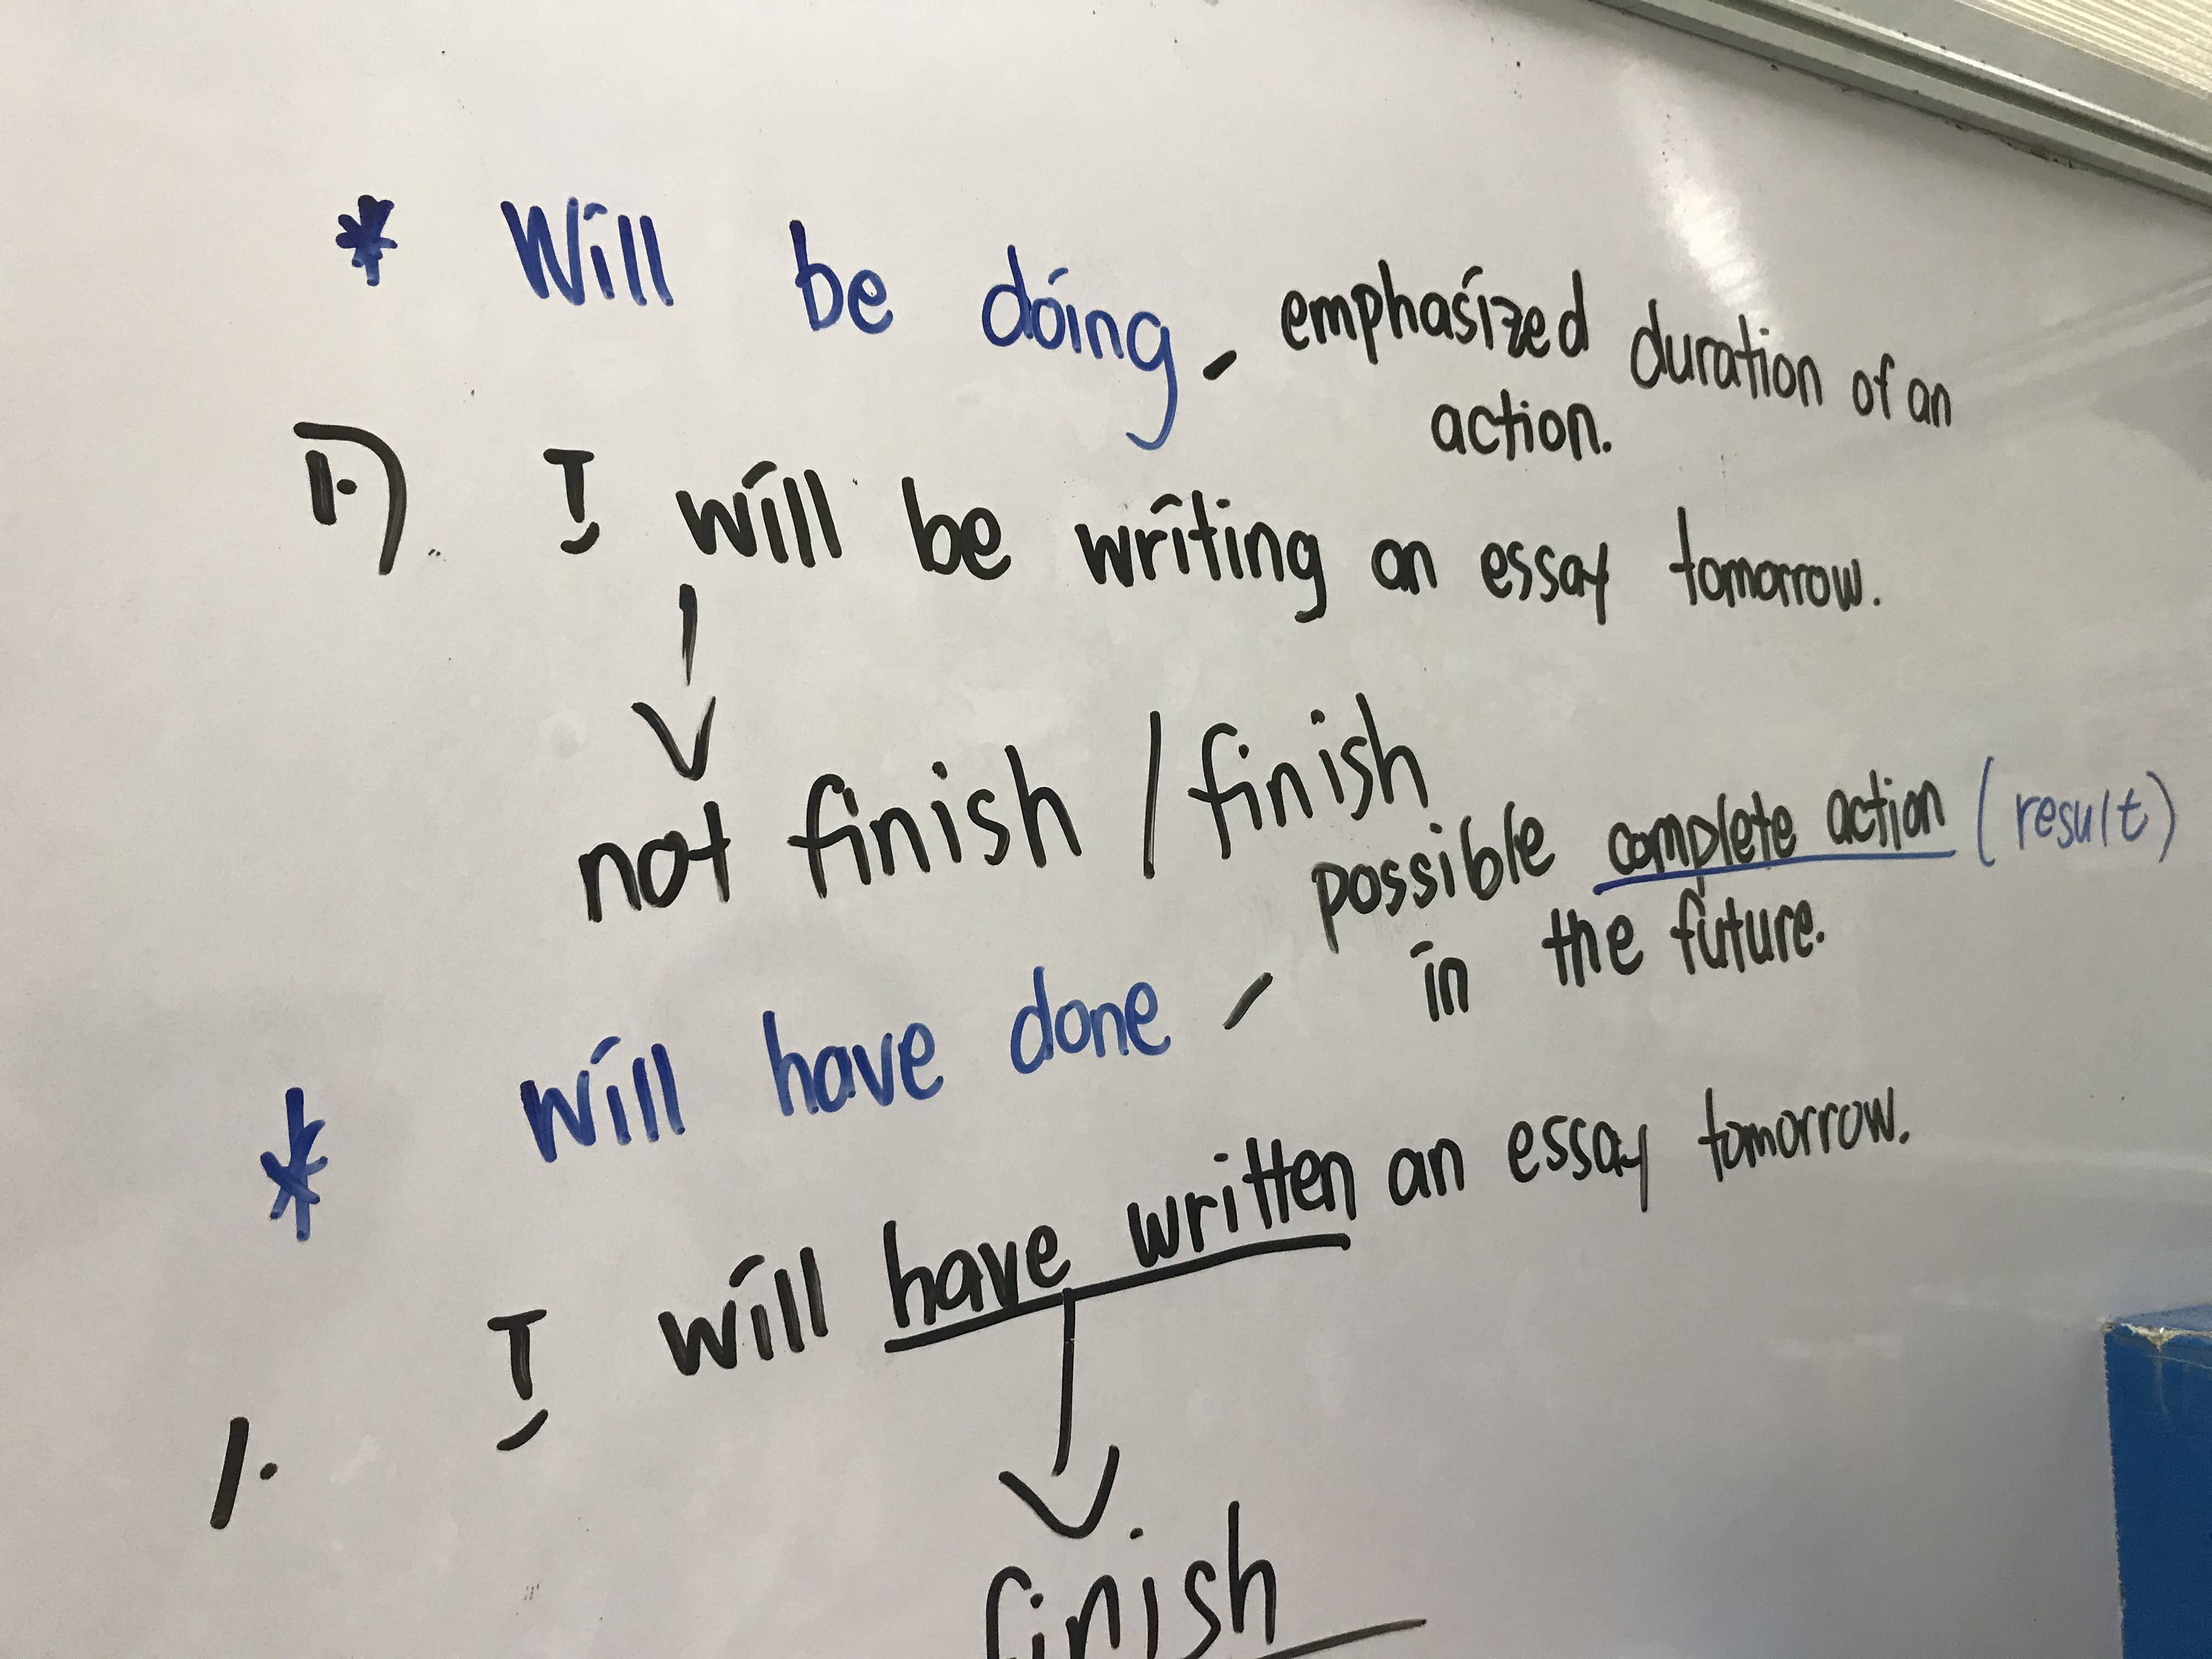 * Will be doing - emphasized duration of an
action.
1.) I will be writing an essay tomorrow.
not finish / finish
possible complete action (result)
in the future.
* will have done -
1. I will have written an essay tomorrow.
finish